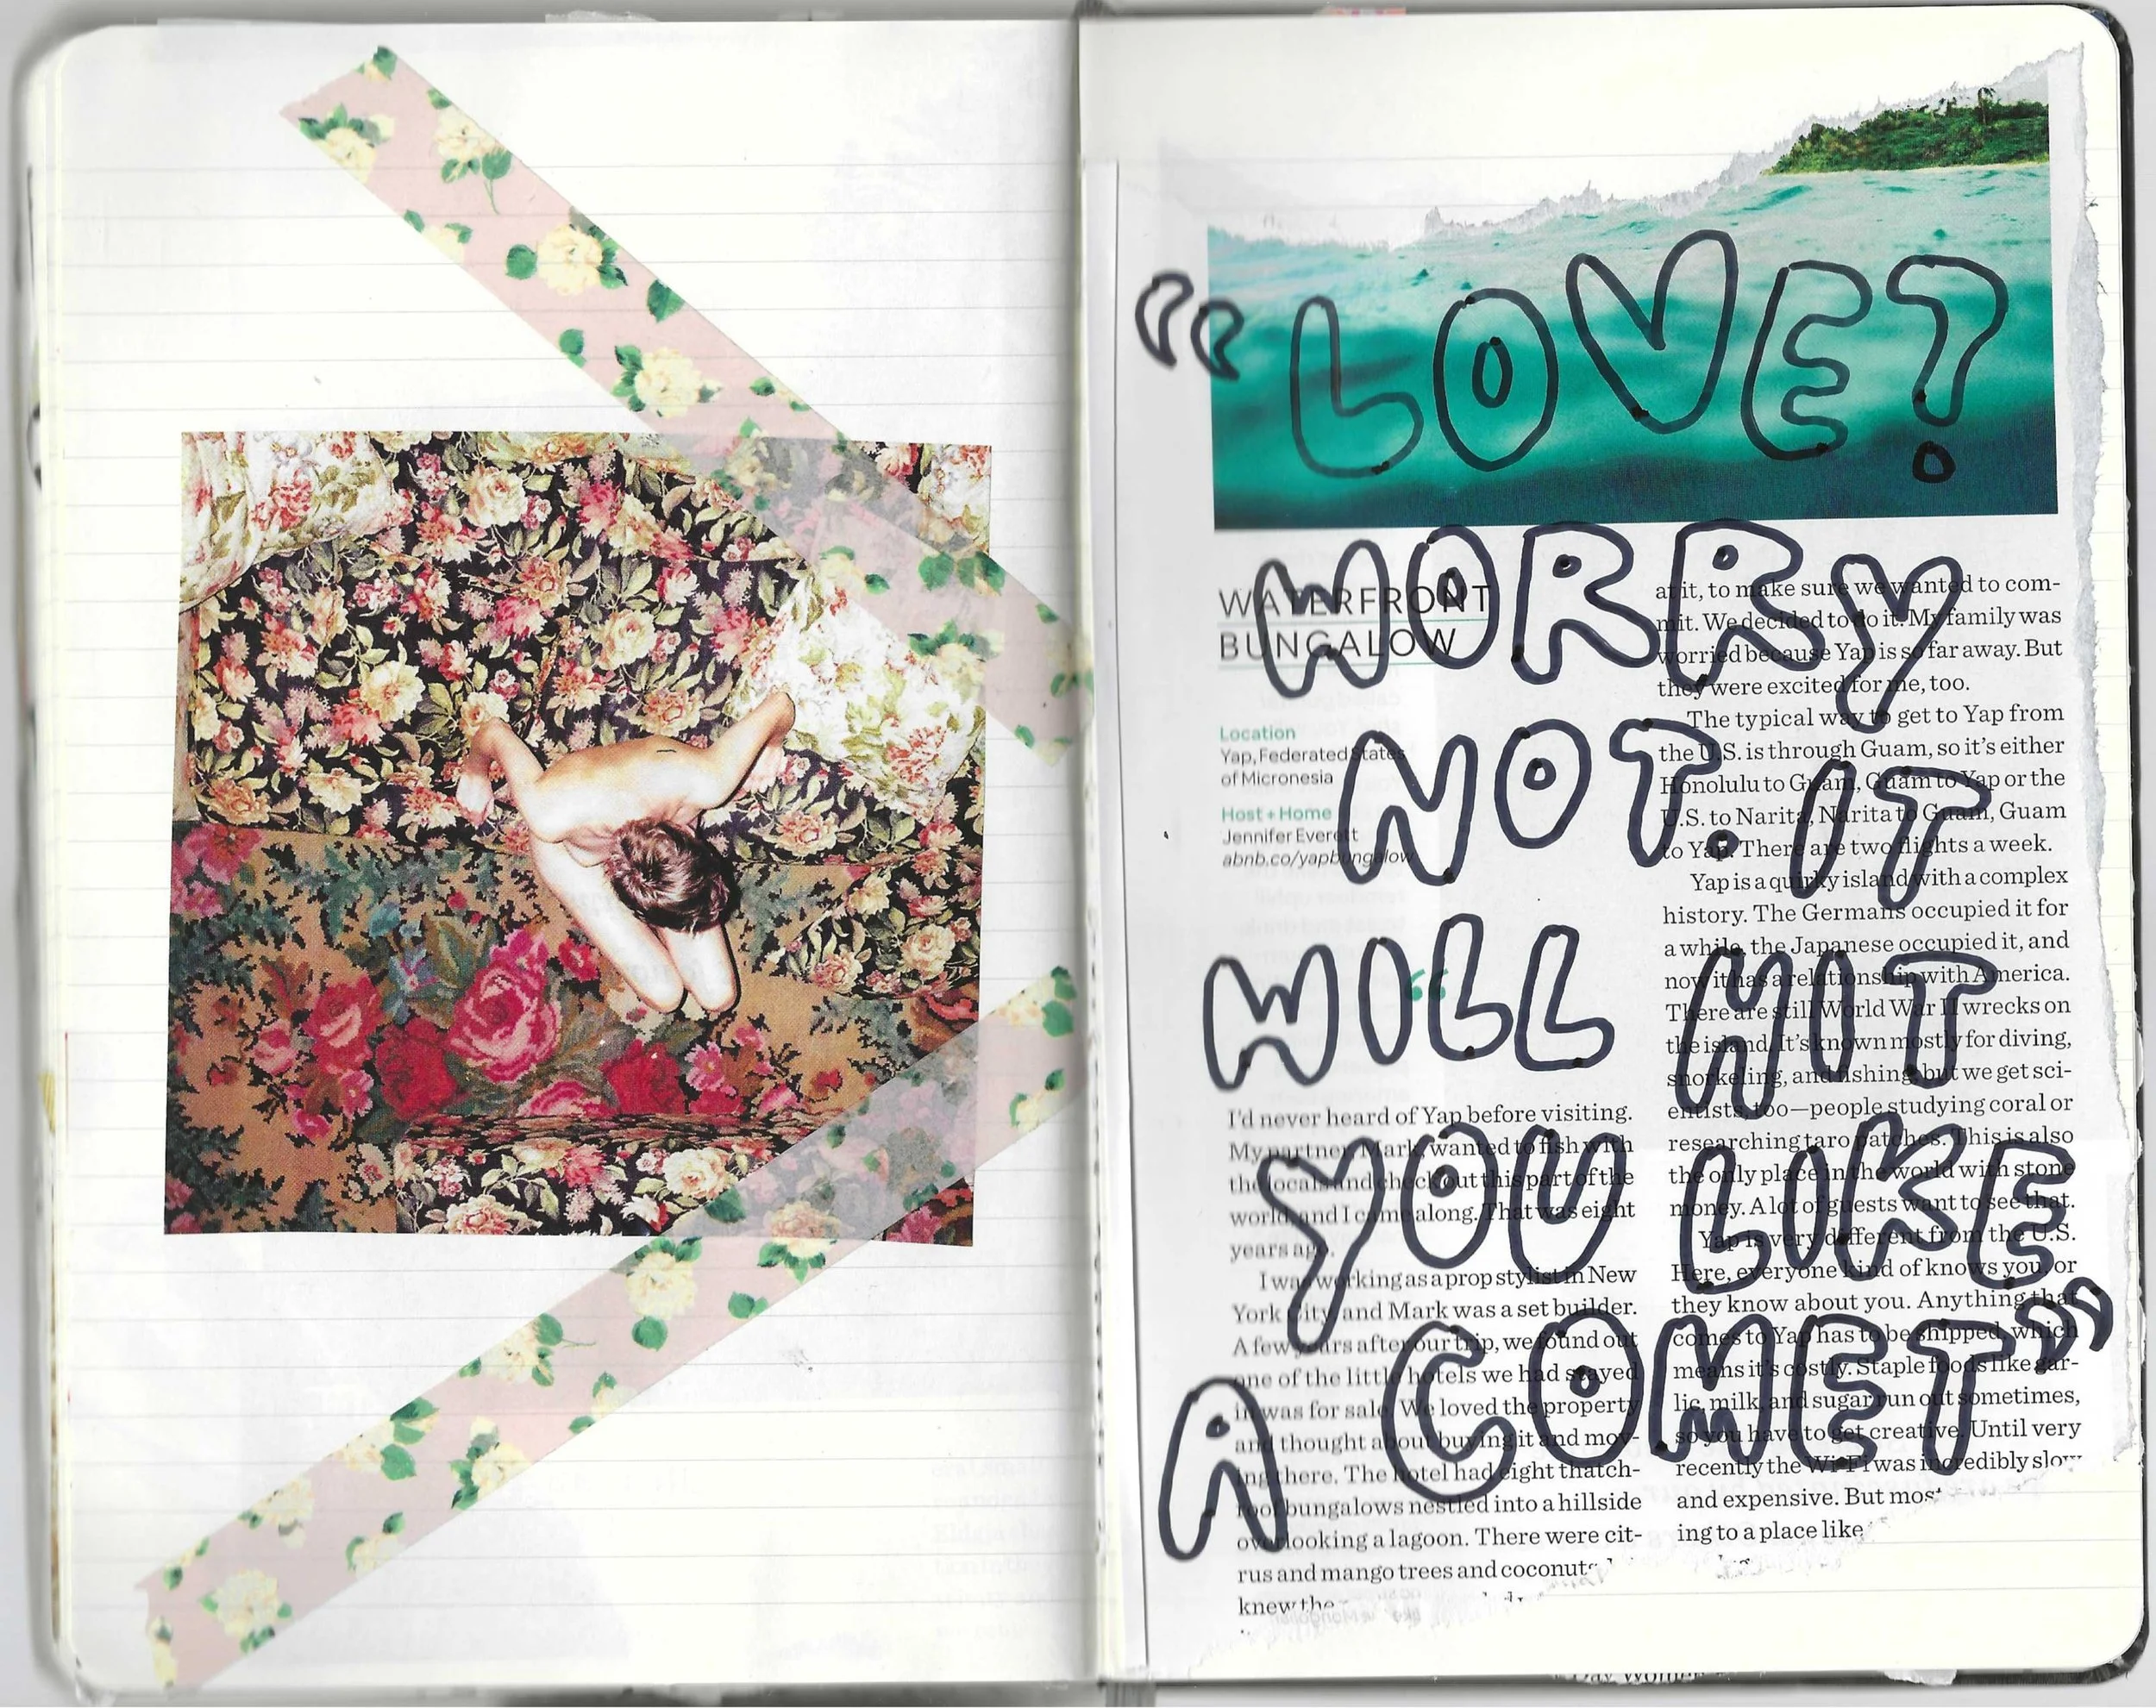 “LOVE?
WORRY
NOT. IT
WILL HIT
YOU LIKE
A COMET”
WATERFRONT
BUNGALOW
Location
Yap, Federated States
of Micronesia
Host + Home
Jennifer Everett
abnb.co/yapbungalow
“
I’d never heard of Yap before visiting.
My partner, Mark, wanted to fish with
the locals and check out this part of the
world, and I came along. That was eight
years ago.
I was working as a prop stylist in New
York City and Mark was a set builder.
A few years after our trip, we found out
one of the little hotels we had stayed
in was for sale. We loved the property
and thought about buying it and mov-
ing there. The hotel had eight thatch-
roof bungalows nestled into a hillside
overlooking a lagoon. There were cit-
rus and mango trees and coconuts
knew the
at it, to make sure we wanted to com-
mit. We decided to do it. My family was
worried because Yap is so far away. But
they were excited for me, too.
The typical way to get to Yap from
the U.S. is through Guam, so it’s either
Honolulu to Guam, Guam to Yap or the
U.S. to Narita, Narita to Guam, Guam
to Yap. There are two flights a week.
Yap is a quirky island with a complex
history. The Germans occupied it for
a while, the Japanese occupied it, and
now it has a relationship with America.
There are still World War II wrecks on
the island. It’s known mostly for diving,
snorkeling, and fishing, but we get sci-
entists, too—people studying coral or
researching taro patches. This is also
the only place in the world with stone
money. A lot of guests want to see that.
Yap is very different from the U.S.
Here, everyone kind of knows you, or
they know about you. Anything that
comes to Yap has to be shipped, which
means it’s costly. Staple foods like gar-
lic, milk, and sugar run out sometimes,
so you have to get creative. Until very
recently the Wi-Fi was incredibly slow
and expensive. But most
ing to a place like